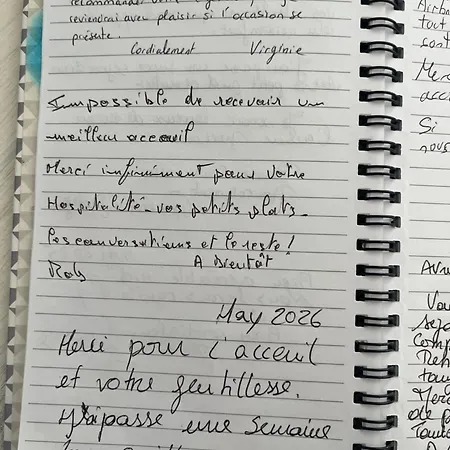 recommander
reviendrai avec plaisir si l'occasion se
présente.
Cordialement Virginie
Impossible de recevoir un
meilleur acceuil
Merci infiniment pour votre
Hospitalité - vos petits plats -
les conversations et le reste !
A bientôt
Rob
May 2026
Merci pour l'acceuil
et votre gentillesse.
passé une semaine
Airb
tout
cont
Merc
acc
Si
nous
Avr
Vou
sejo
Comp
Reh
tou
Merc
de p
Toute